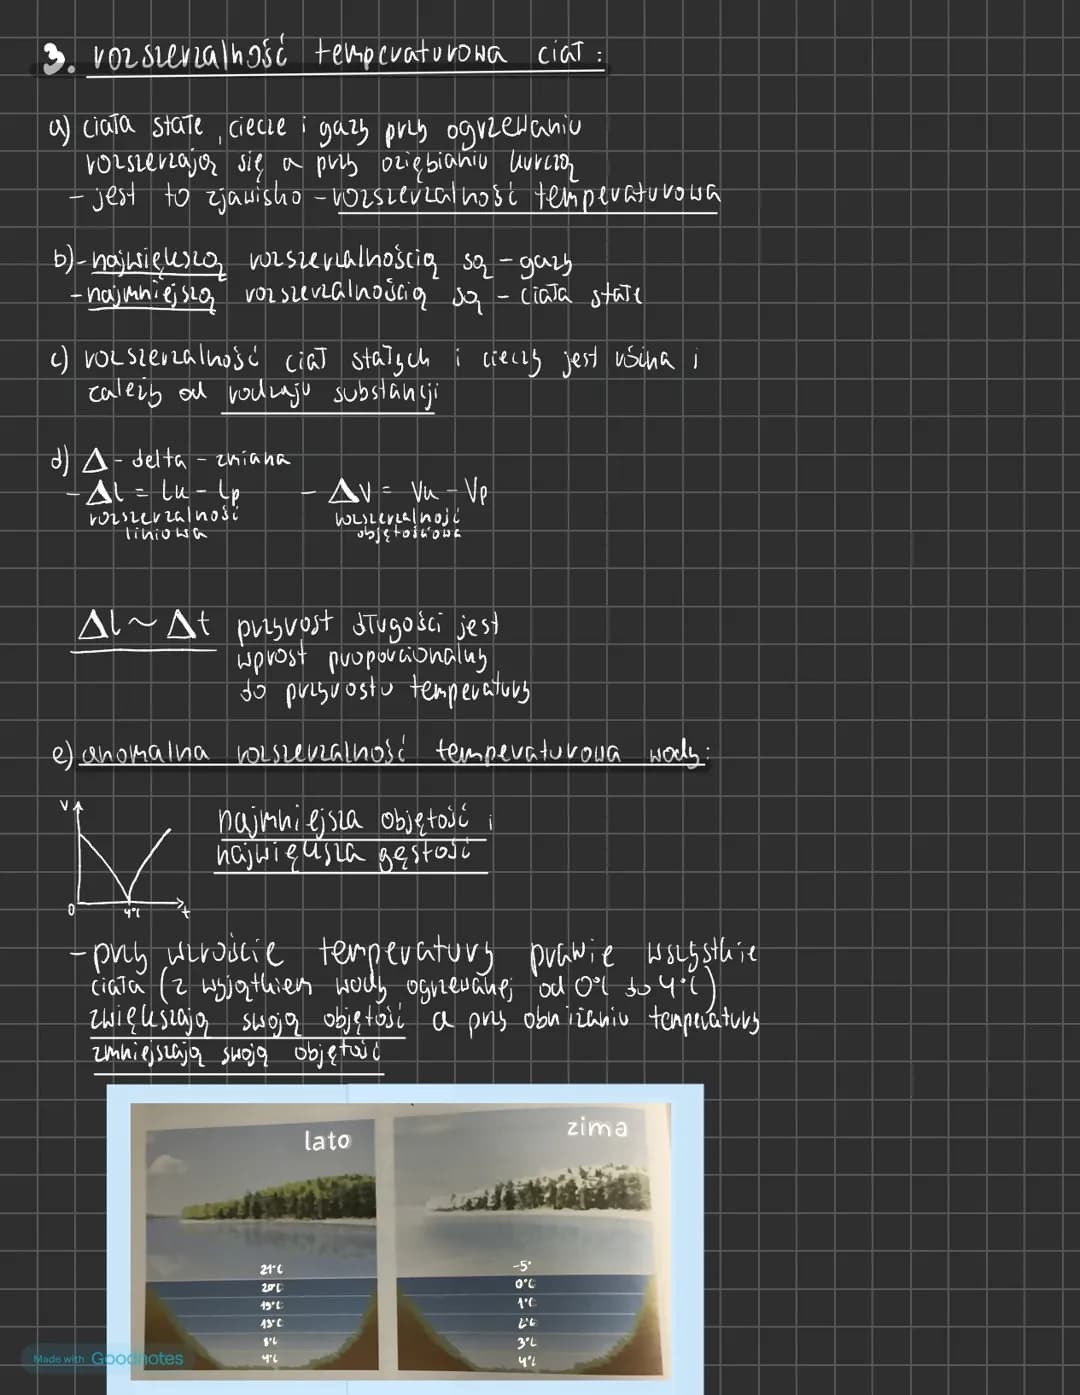 3. rozszerzalność temperaturowa ciał :
a) ciała stałe, ciecze i gazy przy ogrzewaniu
rozszerzają się a przy oziębianiu kurczą
- jest to zjawisko - rozszerzalność temperaturowa
b) - największą rozszerzalnością są - gazy
- najmniejszą rozszerzalnością są - ciała stałe
c) rozszerzalność ciał stałych i cieczy jest różna i
zależy od rodzaju substancji
d) Δ - delta - zmiana
- Δl = lk - lp - ΔV = Vk - Vp
rozszerzalność rozszerzalność
liniowa objętościowa
Δl ~ Δt przyrost długości jest
wprost proporcjonalny
do przyrostu temperatury
e) anomalna rozszerzalność temperaturowa wody:
V
najmniejsza objętość i
największa gęstość
0 4°C t
- przy wzroście temperatury prawie wszystkie
ciała (z wyjątkiem wody ogrzewanej od 0°C do 4°C)
zwiększają swoją objętość a przy obniżaniu temperatury
zmniejszają swoją objętość
lato zima
21°C -5°
20°C 0°C
19°C 1°C
15°C 2°C
8°C 3°C
4°C 4°C
Made with Goodnotes